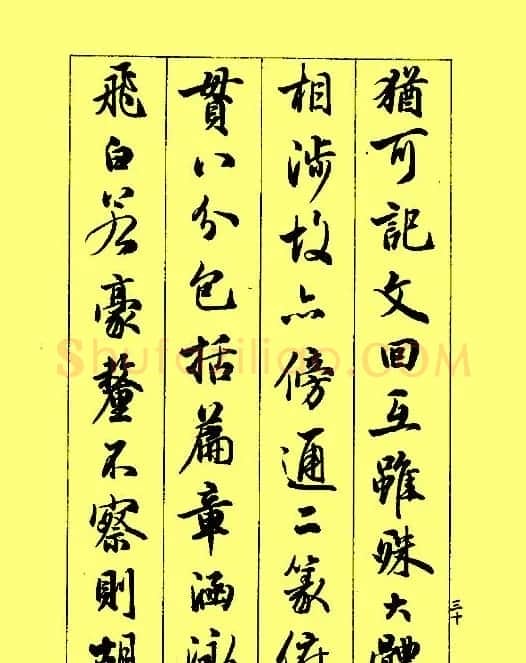 猶可記文回互雖殊大體
相涉故亦傍通二篆俯
貫八分包括篇章涵泳
飛白若豪釐不察則胡
三十
Shufaziliao.COM